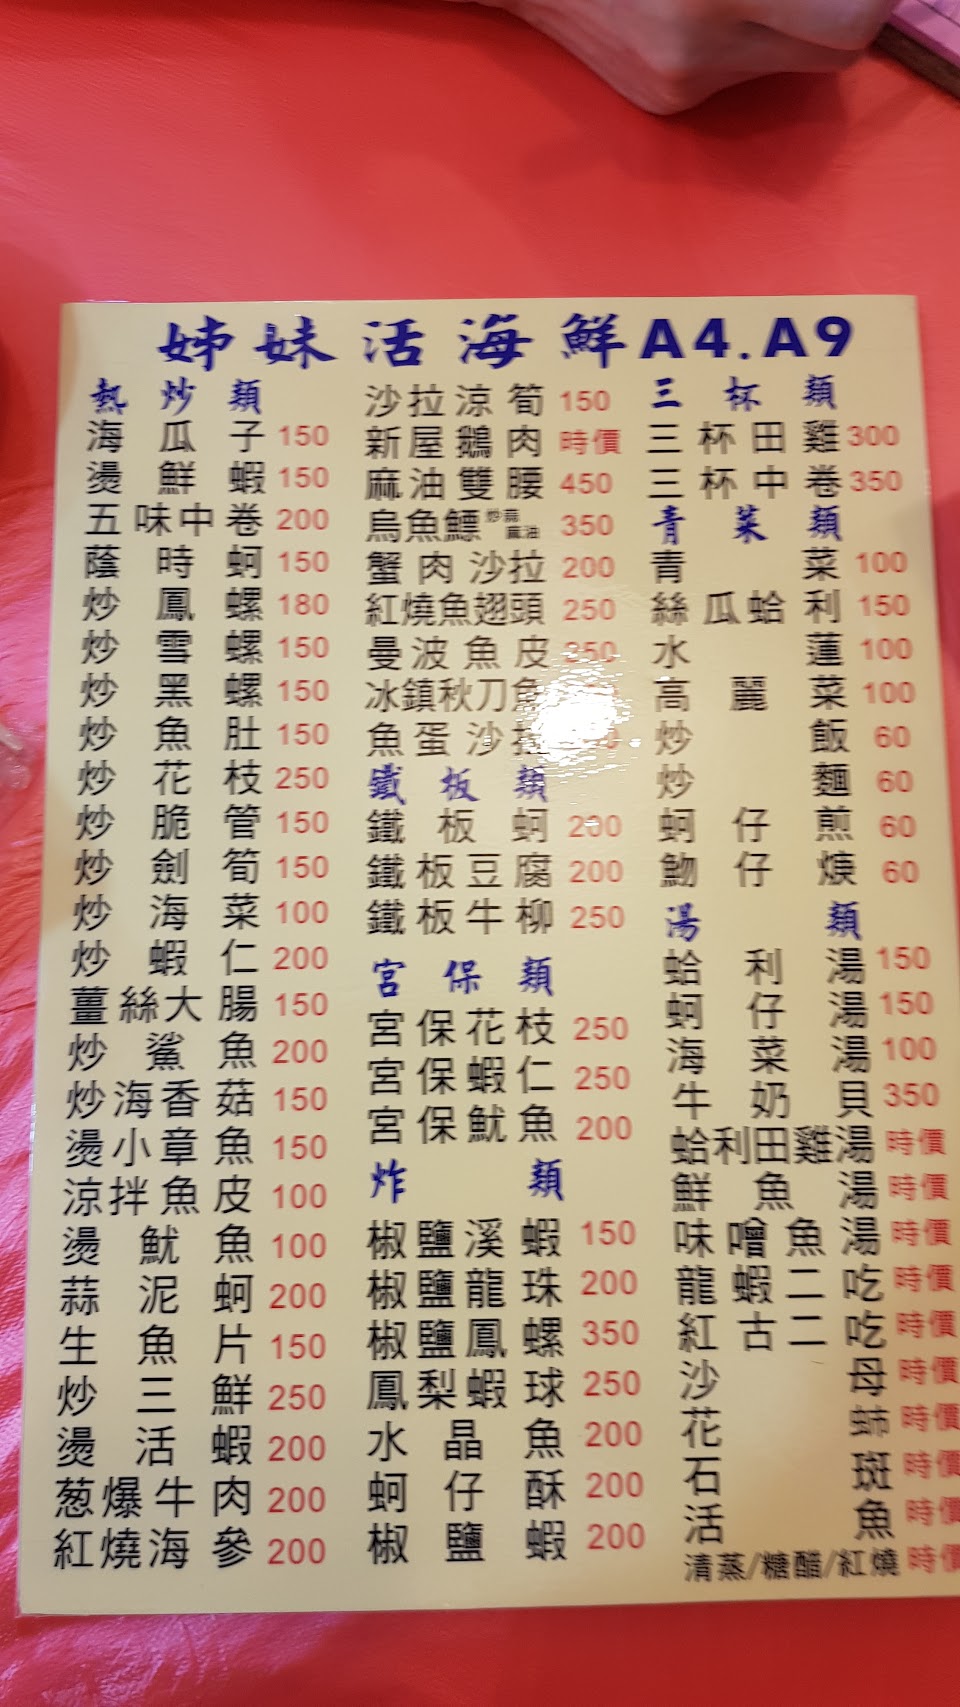 姊妹活海鮮A4.A9
熱炒類
海瓜子 150
燙鮮蝦 150
五味中卷 200
蔭時蚵 150
炒鳳螺 180
炒雪螺 150
炒黑螺 150
炒魚肚 150
炒花枝 250
炒脆管 150
炒劍筍 150
炒海菜 100
炒蝦仁 200
薑絲大腸 150
炒鯊魚 200
炒海香菇 150
燙小章魚 150
涼拌魚皮 100
燙魷魚 100
蒜泥蚵 200
生魚片 150
炒三鮮 250
燙活蝦 200
葱爆牛肉 200
紅燒海參 200
沙拉涼筍 150
新屋鵝肉 時價
麻油雙腰 450
烏魚鰾 炒蒜 麻油 350
蟹肉沙拉 200
紅燒魚翅頭 250
曼波魚皮 250
冰鎮秋刀魚
魚蛋沙拉
鐵板類
鐵板蚵 200
鐵板豆腐 200
鐵板牛柳 250
宮保類
宮保花枝 250
宮保蝦仁 250
宮保魷魚 200
炸類
椒鹽溪蝦 150
椒鹽龍珠 200
椒鹽鳳螺 350
鳳梨蝦球 250
水晶魚 200
蚵仔酥 200
椒鹽蝦 200
三杯類
三杯田雞 300
三杯中卷 350
青菜類
青菜 100
絲瓜蛤利 150
水蓮 100
高麗菜 100
炒飯 60
炒麵 60
蚵仔煎 60
魩仔焿 60
湯類
蛤利湯 150
蚵仔湯 150
海菜湯 100
牛奶貝 350
蛤利田雞湯 時價
鮮魚湯 時價
味噌魚湯 時價
龍蝦二吃 時價
紅古二吃 時價
沙母 時價
花蛳 時價
石斑 時價
活魚 時價
清蒸/糖醋/紅燒 時價